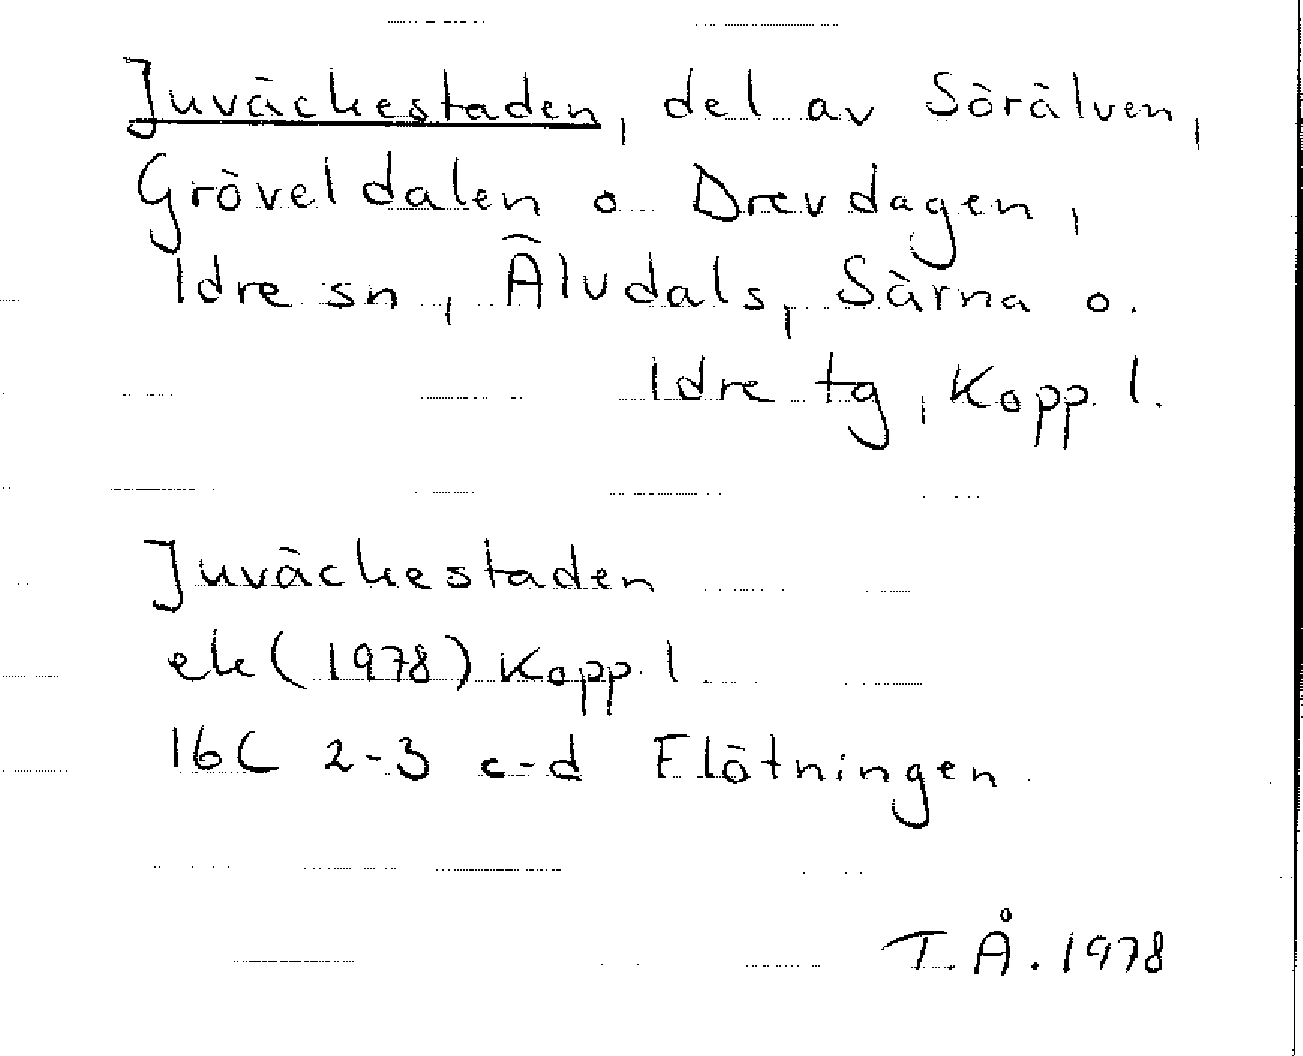 Juväckestaden, del av Sörälven,
Gröveldalen o Drevdagen,
Idre sn, Älvdals, Särna o.
Idre tg, Kopp. l.
Juväckestaden
ek (1978) Kopp. l
16C 2-3 c-d Flötningen.
T.Å. 1978